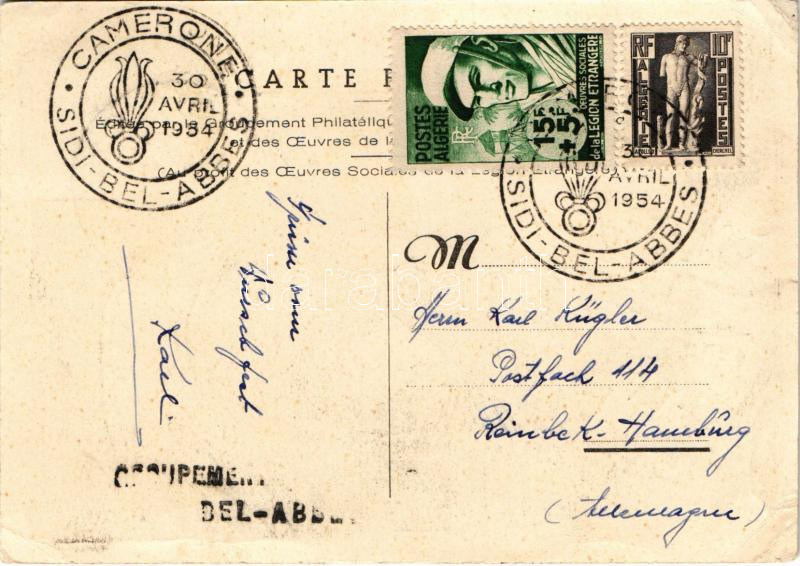 CAMERONE
30
AVRIL
1954
SIDI-BEL-ABBES
CARTE P
Éditée par le Groupement Philatélique
et des Œuvres de la
(Au profit des Œuvres Sociales de la Légion Etrangère)
POSTES
ALGERIE
RF
15F
+5F
ŒUVRES SOCIALES
de la LEGION ETRANGERE
RF
10F
ALGERIE
POSTES
30
AVRIL
1954
SIDI-BEL-ABBES
M
Herrn Karl Kügler
Postfach 114
Reinbek-Hamburg
(Allemagne)
Grüsse vom
Karl
GROUPEMENT
BEL-ABBE
darabanth